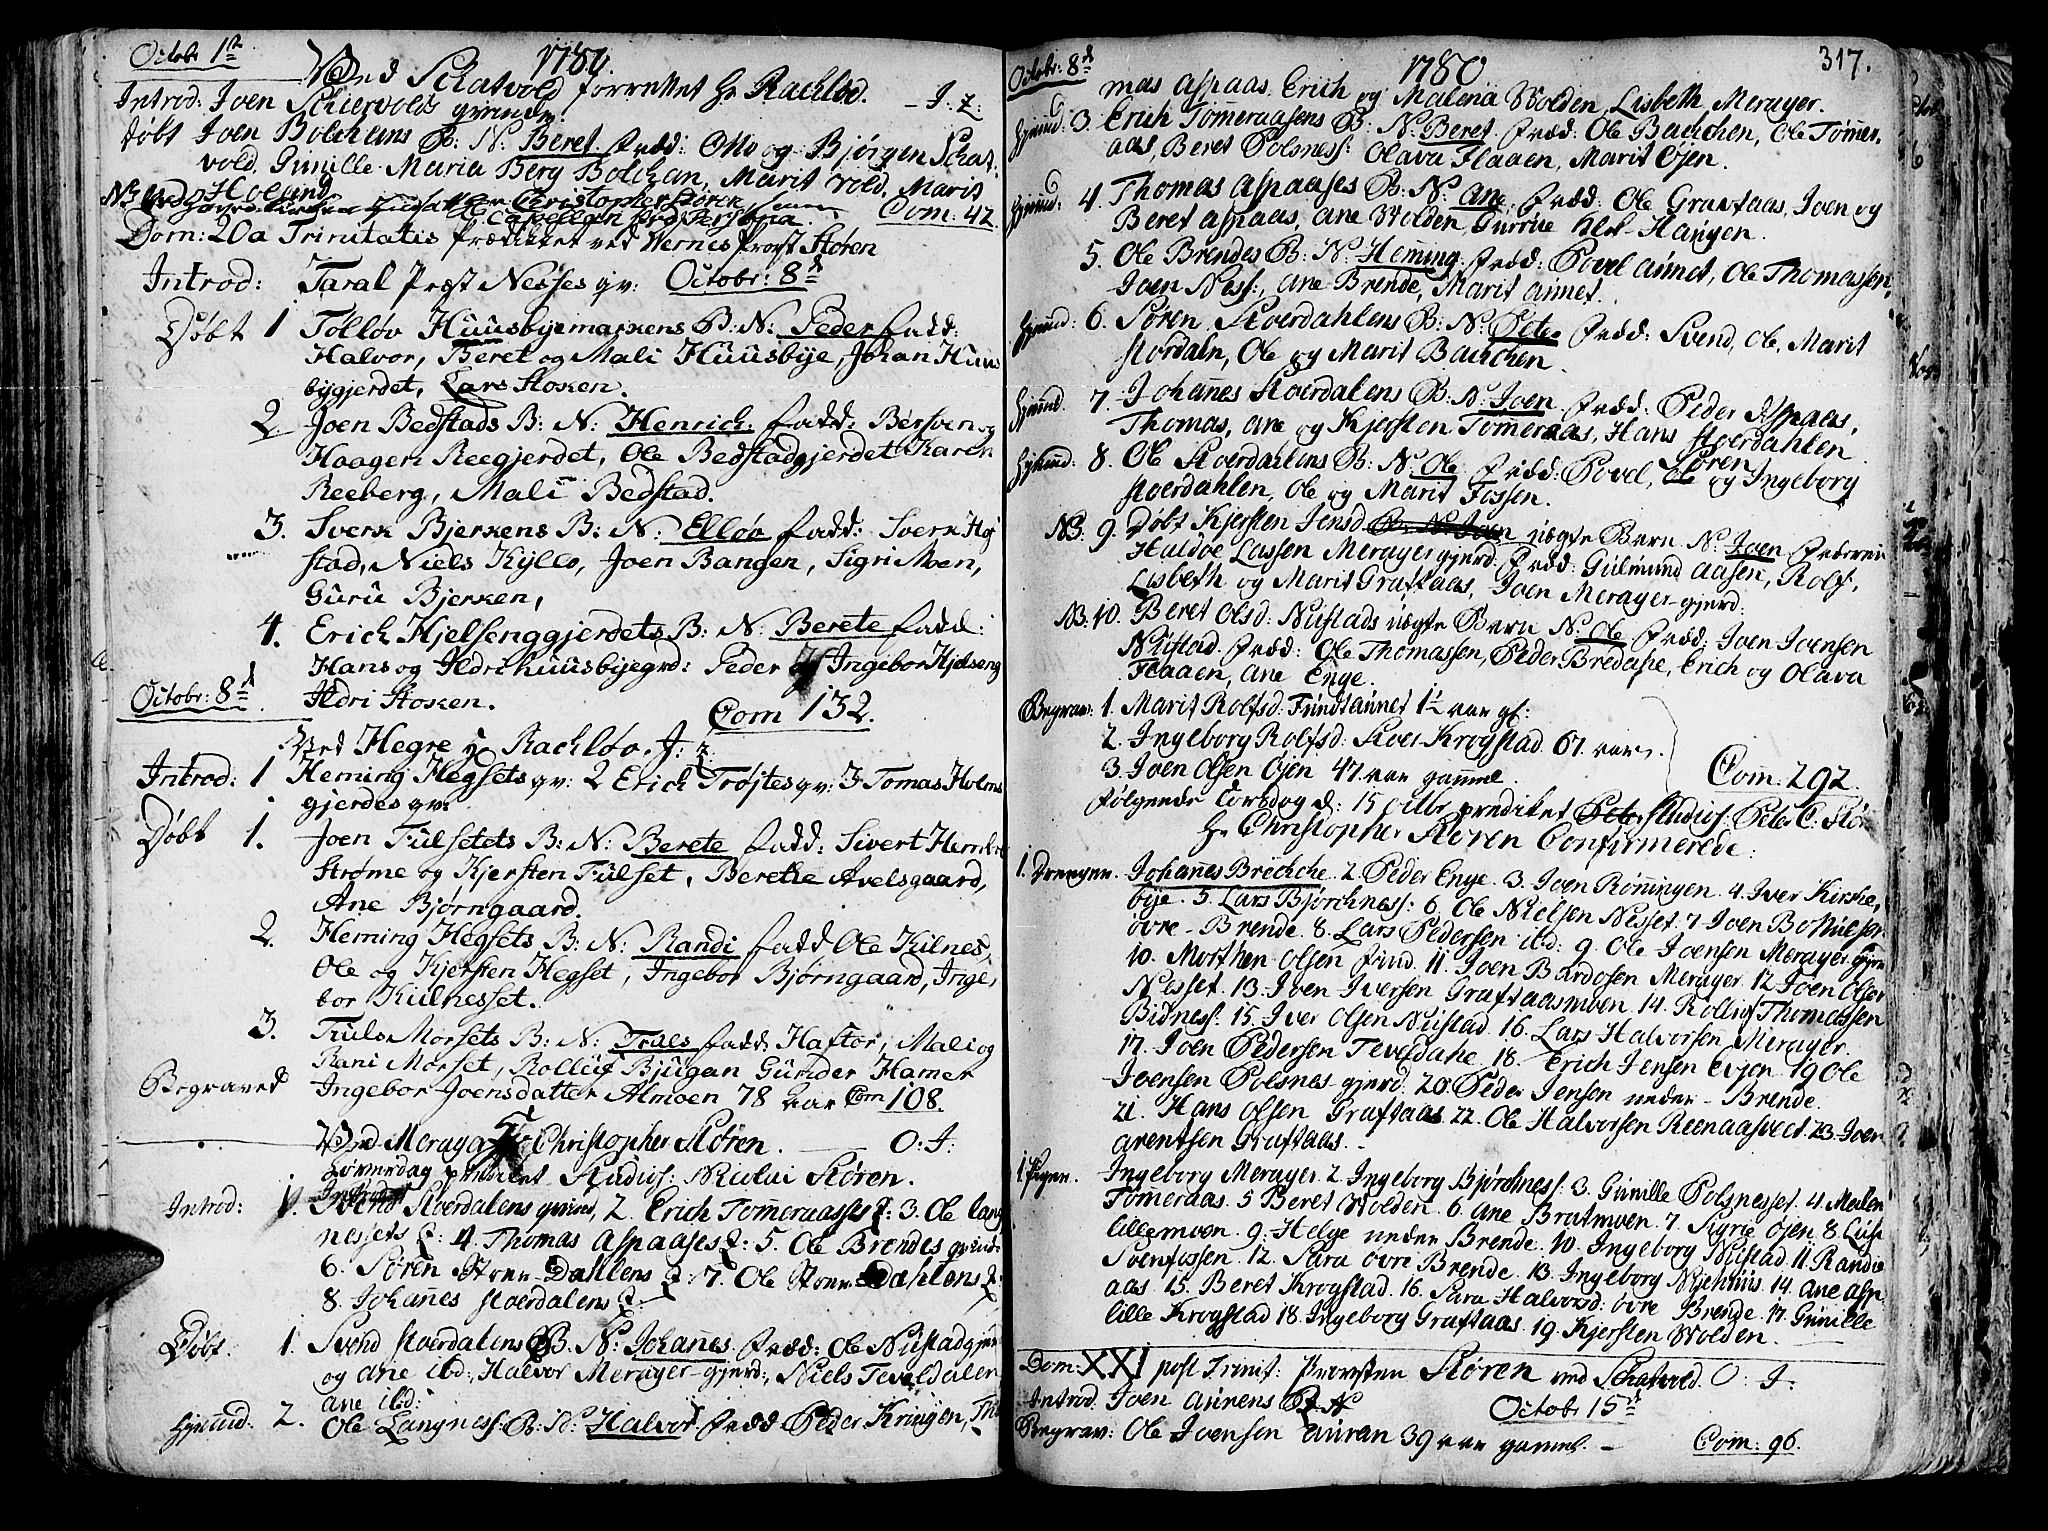 Octobr 1st
1780.
Ved Schatvold forrettet Hr Rachløv. — J. Z:
Introd: Joen Schiervolds qvinde.
døbt Joen Bolchans B: N: Beret. fadd: Otto og Bjørgen Schat-
vold, Gunille Maria Berg Bolchan, Marit Vold, Marit
Hoelvind
Com: 42.
Dom: 20a Trinitatis prædikket ved Vernes Provst Stören
Introd: Taral Præst Nesses qv: Octobr: 8d
Døbt 1 Tolløv Huusbyemarkens B: N: Peder fadd:
Halvor, Beret og Mali Huusbye, Johan Huus
bygjerdet, Lars Stoken.
2. Joen Bedstads B: N: Henrich. fadd: Bersven og
Haagen Reegjerdet, Ole Bedstadgjerdet Karen
Reeberg, Mali Bedstad.
3. Sverk Bjerkens B: N: Elløv fadd: Sverk Hog
stad, Niels Kyllo, Joen Bangen, Sigri Moen,
Guru Bjerken,
4. Erich Kjelsenggjerdets B: N: Berete fadd:
Hans og Ildri huusbyegrd: Peder og Ingebor Kjelseng
Ildri Stoken. Com 132.
Octobr: 8d
Ved Hegre Rachløv. J: Z
Introd: 1 Heming Hegsets qv: 2 Erich Trøjtes qv: 3 Tomas Holms
gjerdes qv:
Døbt 1. Joen Fulsetets B: N: Berete fadd: Sivert Hembre
Strøme og Kjersten Fulset, Berethe Avelsgaard,
Ane Bjørngaard.
2. Heming Hegsets B: N: Randi fadd Ole Kilnes,
Ole og Kjersten Hegset, Ingebor Bjørngaard, Inge-
bor Kulnesset.
3. Truls Morsets B: N: Trues fadd Haftor, Mali og
Rani Morset, Rolluf Bjugan Gunder Hamer
Begravet Ingebor Joensdatter Almoen 78 Aar Com 108.
Ved Meraga Hr Christopher Stören. — O: J:
Løverdag prædiket Studios: Nicolai Stören.
Introd: 1. Svend Stoerdalens qvind, 2. Erich Tømeraasses Z: 3. Ole Lang
nessets Z: 4. Thomas Aspaases Z: 5. Ole Brendes qvind:
6. Sören Stoer-Dahlens Z: 7. Ole Stoer-Dahlens Z:
8. Johañes Stoerdalens Z:
Døbt: 1. Svend Stoerdalens B. N: Johañes. Fadd: Ole Nustadgjerd
og Ane ibd:, Halvor Merager-gjerd:, Niels Teveldalen
Ane ibd:
Hjemd: 2. Ole Langness: B: N: Halvor. Fadd Peder Kringen, Tho
Octobr: 8d
1780.
317.
mas Aspaas, Erich og Malena Wolden, Lisbeth Merager.
Hjemd: 3. Erich Tømeraasens B: N: Beret. Fadd: Ole Bachen, Ole Tømer-
aas, Beret Polsness: Olava Flaaen, Marit Øjen.
Hjemd: 4. Thomas Aspaases B: N: Ane. Fadd: Ole Graftaas, Joen og
Beret Aspaas, Ane Wolden, Gurrue Haugen.
5. Ole Brendes B: N: Heming: Fadd: Povel Aunet, Ole Thomassen,
Joen Ness:, Ane Brende, Marit Aunet.
Hjemd: 6. Sören Stoerdahlens B: N: Peter Fadd: Svend, Ole, Marit
Stordaln, Ole og Marit Bachen.
Hjemd. 7. Johañes Stoerdalens B: N: Joen Fadd: Peder Aspaas,
Thomas, Ane og Kjersten Tømeraas, Hans Stoerdahlen.
Hjemd: 8. Ole Stoerdahlens B: N: Ole Fadd: Povel, Sören og Ingeborg
Stoerdahlen, Ole og Marit Fossen.
NB: 9. Døbt Kjersten Jensd uægte Barn N: Joen Faderen
Haldoe Lassen Meragergjerd. Fadd: Gulmund Aasen, Rolf,
Lisbeth og Marit Graftaas, Joen Merager-gjerd:
NB. 10. Beret Olsd: Nustads uægte Barn N: Ole Fader: Joen Joensen
Nustad. Fadd: Ole Thomassen, Peder Bredahe, Erich og Olava
Flaaen, Ane Enge.
Begrav: 1. Marit Rolfsd: Fundtaunet 1½ aar gl:
2. Ingeborg Rolfsd: Stoer Krogstad 67. aar.
3. Joen Olsen Øjen 47. aar gammel. Com: 292.
Følgende Torsdag d: 15 Octbr prediket Studios: Peter C: Stör
Hr Christopher Stören Confirmerede:
1. Drengen. Johañes Breckche. 2. Peder Enge. 3. Joen Röñingen. 4. Iver Kirke-
bye. 5. Lars Bjørchness: 6. Ole Nielsen Nesset. 7. Joen Bottulsen
øvre-Brende. 8. Lars Pedersen ibd: 9. Ole Joensen Merager gjerd
10. Morthen Olsen Fund. 11. Joen Bardosen Merager. 12. Joen Olsen
Nesset. 13. Joen Iversen Graftaasmoen. 14. Rolluf Thomassen
Bidness: 15. Iver Olsen Nustad. 16. Lars Halvorsen Merager.
17. Joen Pedersen Teveldahe. 18. Erich Jensen Evjen 19 Ole
Joensen Polsnes-gjerd. 20. Peder Jensen neder-Brende.
21. Hans Olsen Graftaas. 22. Ole Halvorsen Reenaasvolt. 23. Joen
Arentsen Graftaas. -
1. Pigen. Ingeborg Merager. 2. Ingeborg Bjørchness: 3. Gunille Polsnesset. 4. Malen
Tømeraas. 5 Beret Wolden. 6. Ane Bratmoen. 7. Sigrie Øjen. 8. Lisb
lillemoen. 9. Helge neder Brende. 10. Ingeborg Nustad. 11. Randie
Svenfossen. 12. Sara øvre Brende. 13. Ingeborg Nyehuus. 14. Ane Asp-
aas. 15. Beret Krogstad. 16. Sara Halvorsd: øvre Brende. 17. Gunille
lille Krogstad 18. Ingeborg Graftaas. 19. Kjersten Wolden.
Dom: XXI post Trinit: Provsten Stören ved Schatvold. O: J.
Introd. Joen Aunens Octobr 15d
Begrav: Ole Joensen Auran 39 aar gammel. — Com: 96.